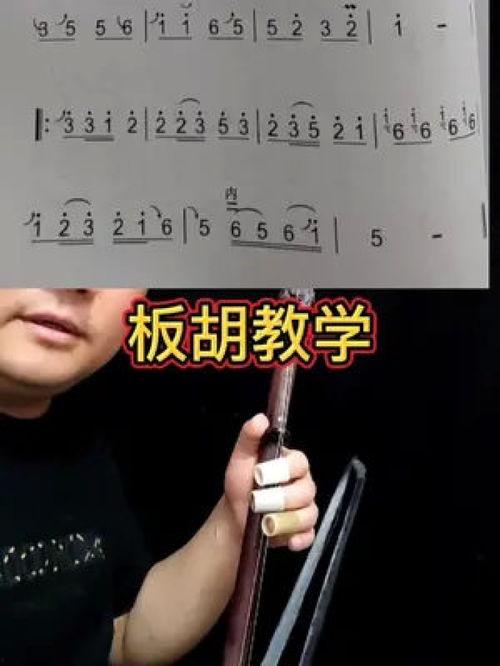 5 5 5 6 | 1̇ 1̇ 6 5 | 5 2̇ 3 2̇ | 1̇ -
‖: 3̇ 3̇ 1̇ 2̇ | 2̇ 2̇ 3̇ 5̇ 3̇ | 2̇ 3̇ 5̇ 2̇ 1̇ | 6 6 6 6
内
1̇ 2̇ 3̇ 2̇ 1̇ 6 | 5 6 5 6 1̇ | 5 -
板胡教学